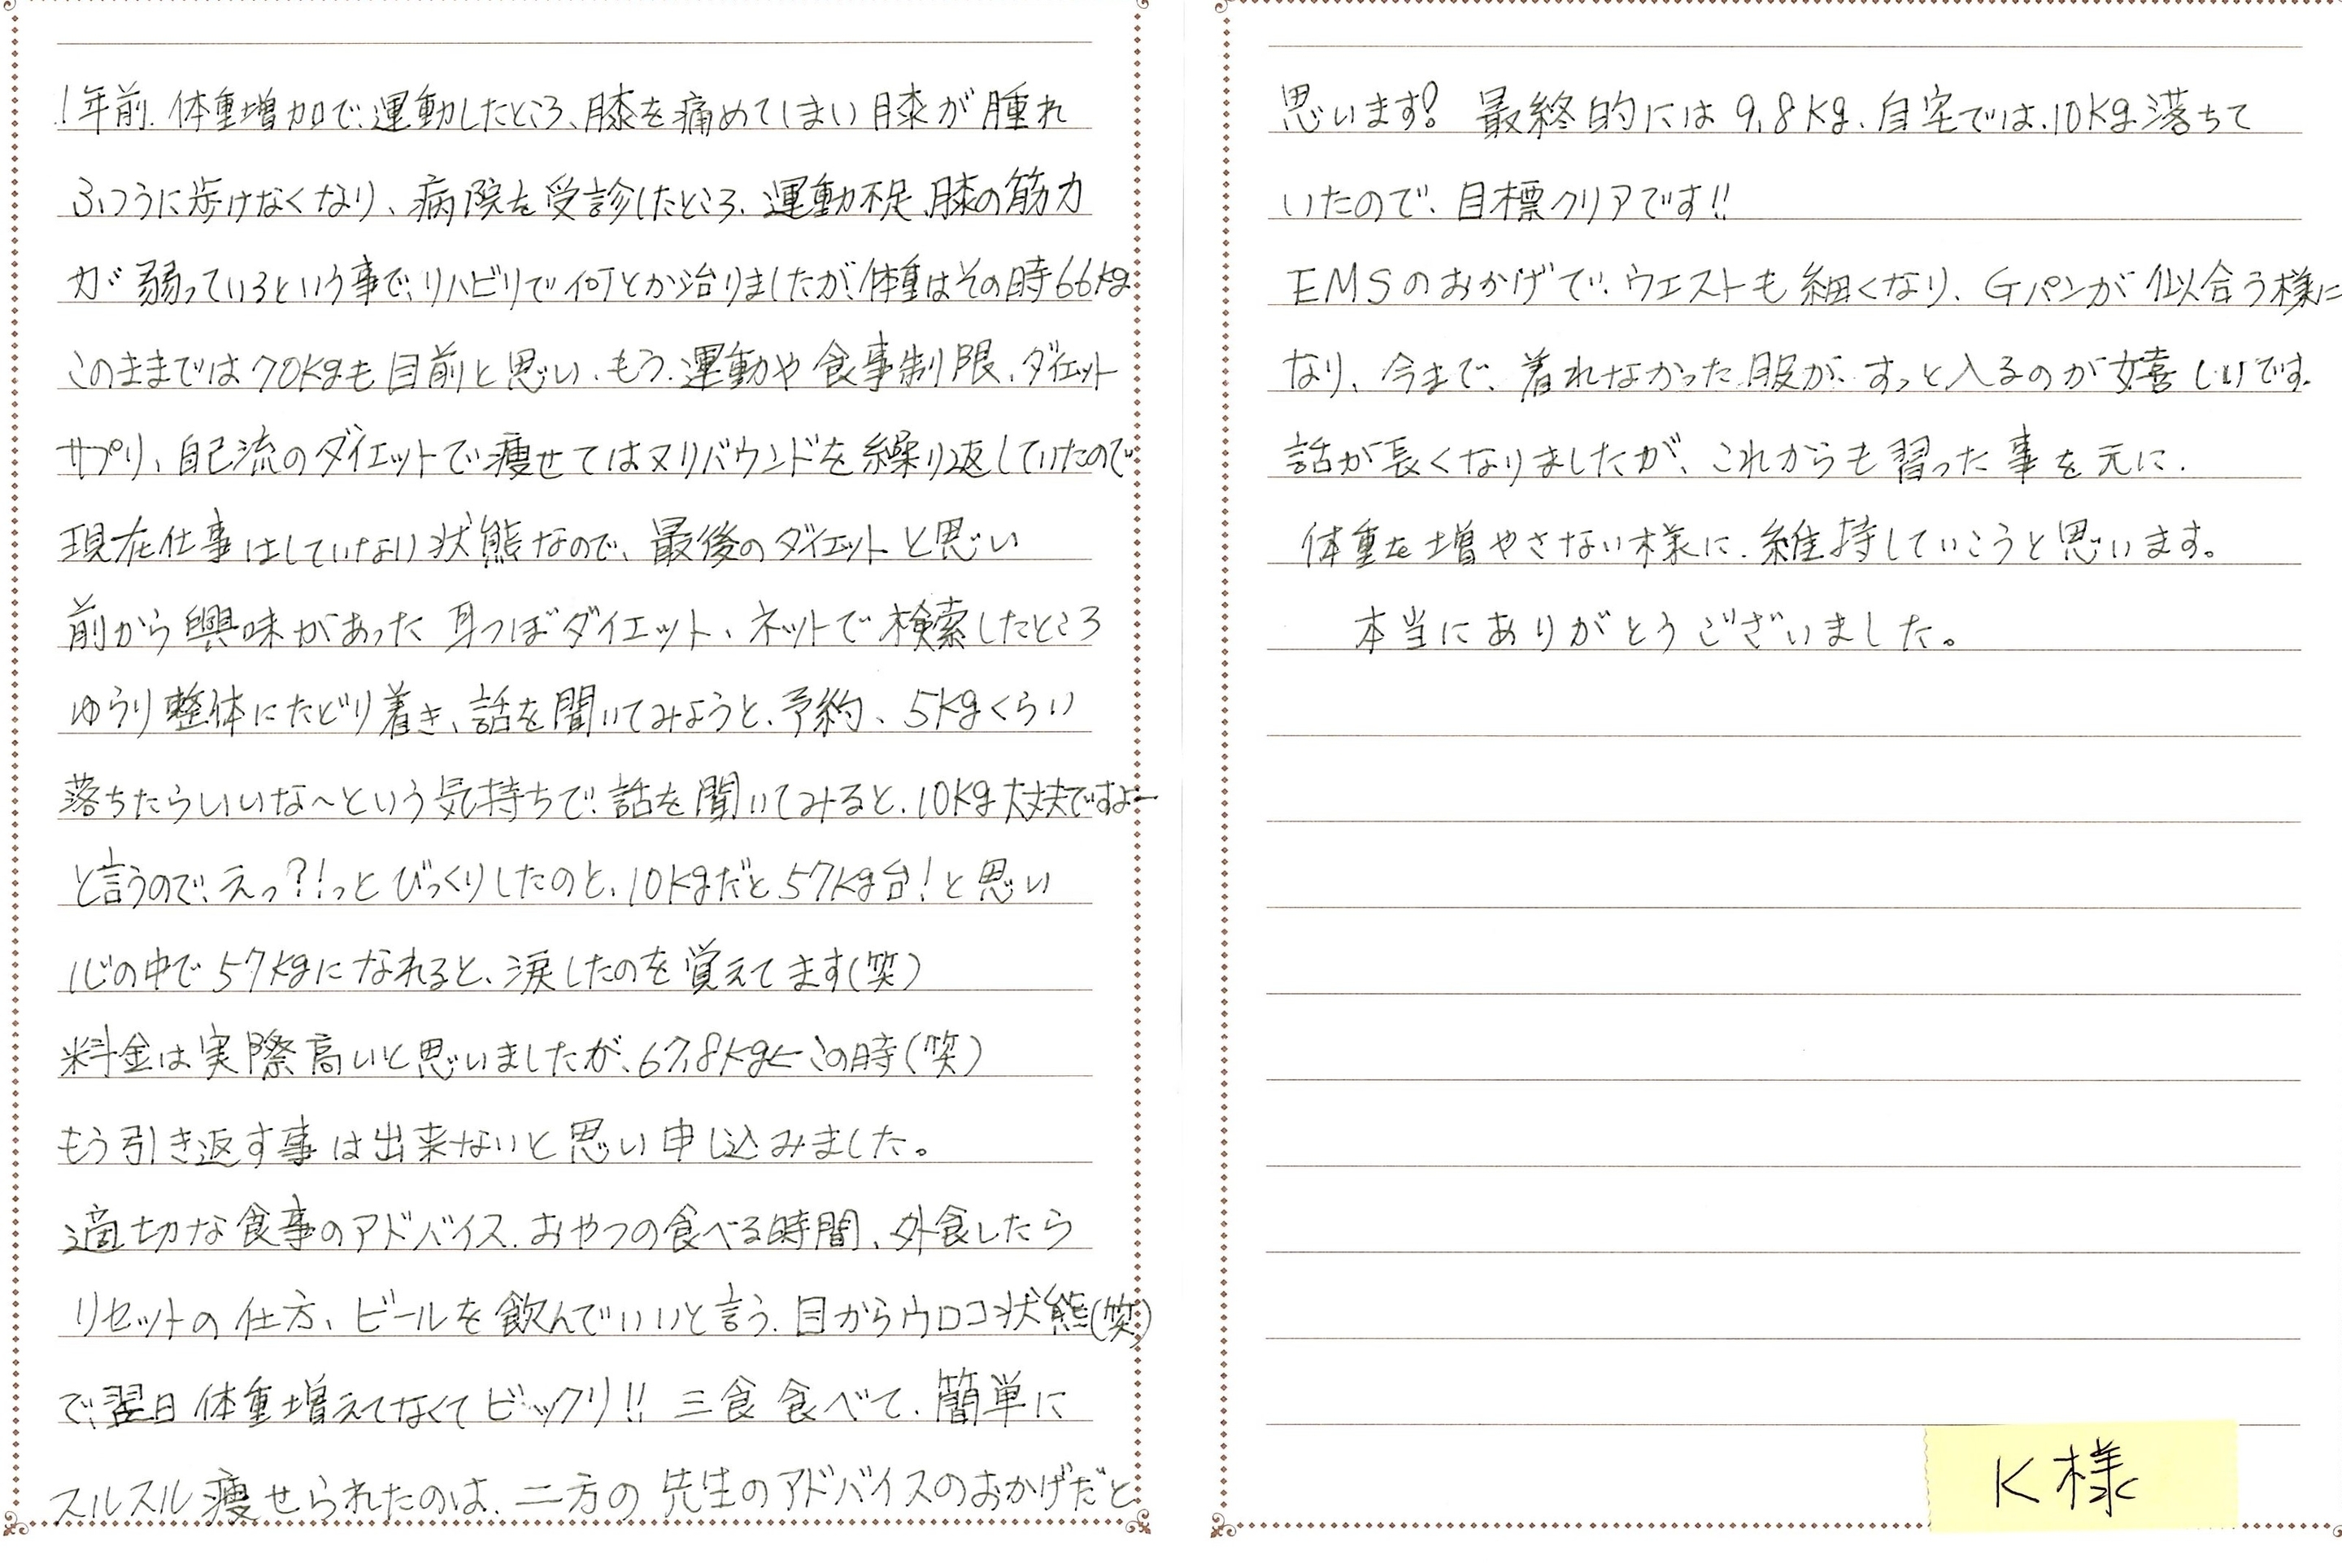 1年前、体重増加で、運動したところ、膝を痛めてしまい膝が腫れ
ふつうに歩けなくなり、病院を受診したところ、運動不足、膝の筋力
が弱っているという事で、リハビリで何とか治りましたが、体重はその時66kg
このままでは70kgも目前と思い、もう、運動や食事制限、ダイエット
サプリ、自己流のダイエットで痩せてはヌリバウンドを繰り返していたので
現在仕事はしていない状態なので、最後のダイエットと思い
前から興味があった耳つぼダイエット、ネットで検索したところ
ゆうり整体にたどり着き、話を聞いてみようと、予約、5kgくらい
落ちたらいいな〜という気持ちで、話を聞いてみると、10kg大丈夫ですよー
と言うので、えっ?!っとびっくりしたのと、10kgだと57kg台!と思い
心の中で57kgになれると、涙したのを覚えてます(笑)
料金は実際高いと思いましたが、67.8kg←この時(笑)
もう引き返す事は出来ないと思い申し込みました。
適切な食事のアドバイス、おやつの食べる時間、外食したら
リセットの仕方、ビールを飲んでいいと言う、目からウロコ状態(笑)
で、翌日体重増えてなくてビックリ!! 三食食べて、簡単に
スルスル痩せられたのは、二方の先生のアドバイスのおかげだと
思います! 最終的には9.8kg、自宅では、10kg落ちて
いたので、目標クリアです!!
EMSのおかげで、ウエストも細くなり、Gパンが似合う様に
なり、今まで、着れなかった服が、すっと入るのが嬉しいです。
話が長くなりましたが、これからも習った事を元に、
体重を増やさない様に、維持していこうと思います。
本当にありがとうございました。
K様